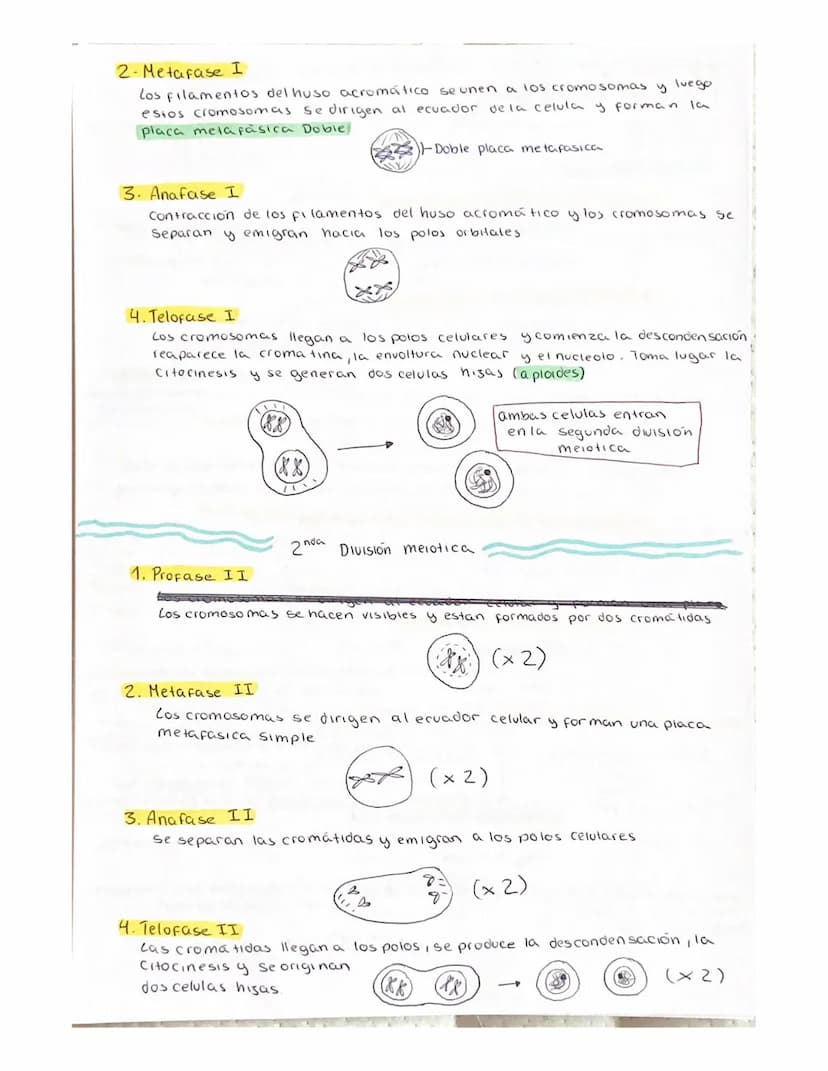 2. Metafase I
Los filamentos del huso acromático se unen a los cromosomas y luego
estos cromosomas se dirigen al ecuador de la celula y forman la
placa metafásica Doble
Doble placa metafasica
3. Anafase I
Contracción de los filamentos del huso acromático y los cromosomas se
separan y emigran hacia los polos orbitales
4. Telofase I
Los cromosomas llegan a los polos celulares y comienza la descondensación,
reaparece la cromatina, la envoltura nuclear y el nucleolo. Toma lugar la
citocinesis y se generan dos celulas hizas (aploides)
ambas celulas entran
en la segunda división
meiotica
2nda División meiotica
1. Profase II
Los cromosomas se hacen visibles y estan formados por dos cromátidas
(x 2)
2. Metafase II
Los cromosomas se dirigen al ecuador celular y forman una placa
metafasica simple
(x 2)
3. Anafase II
se separan las cromátidas y emigran a los polos celulares
(x 2)
4. Telofase II
Las cromátidas llegan a los polos, se produce la descondensación, la
citocinesis y se originan
dos celulas hizas.
(x 2)